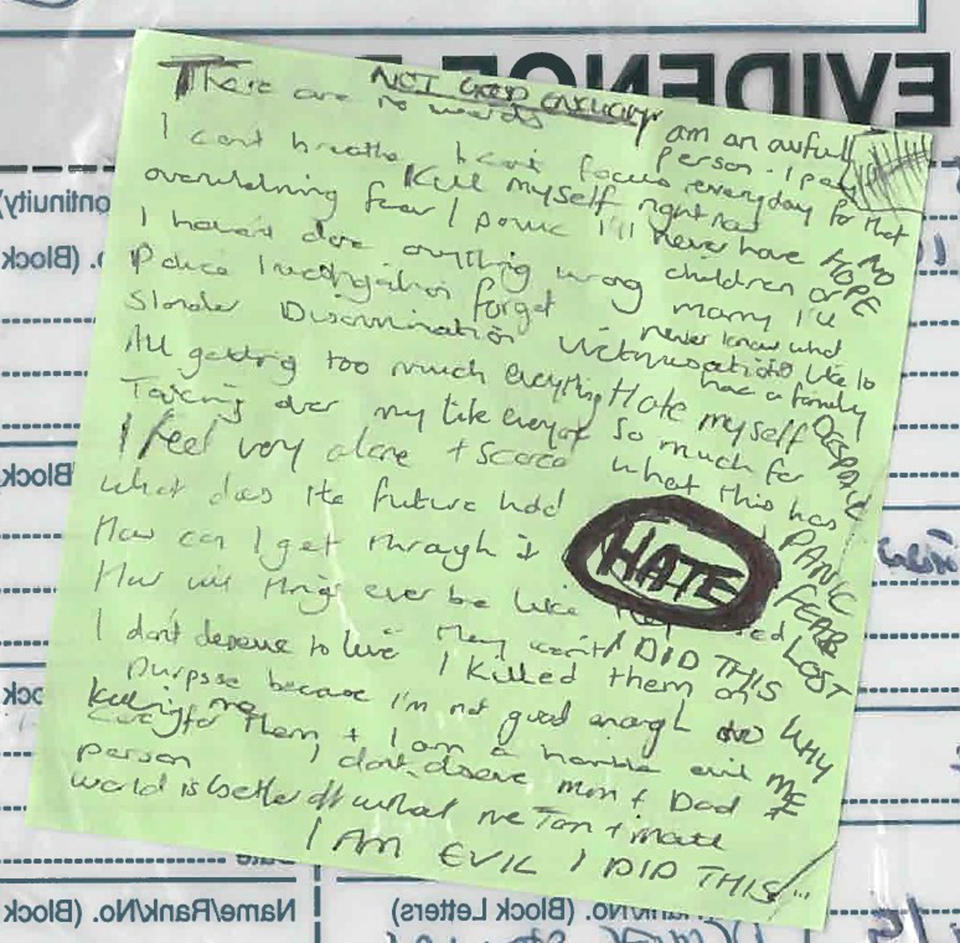 EVIDENCE
NOT GOOD ENOUGH
There are no words
I can't breathe I can't focus
overwhelming fear / panic
Kill myself right now
I haven't done anything wrong
Police Investigation forget
Slander Discrimination Victimisation
All getting too much everything
Taking over my life everyday
I feel very alone + scared
what does the future hold
How can I get through it
How will things ever be like
I don't deserve to live
am an awful
person. I pay
everyday for that
I'll never have
children or
marry I'll
never know what
like to
have a family
Hate myself
so much for
what this has
HATE
NO
HOPE
DESPAIR
PANIC
FEAR
LOST
WHY
ME
I DID THIS
I killed them on
purpose because I'm not good enough to
care for them + I am a horrible evil
person
killing me
I don't deserve mom + Dad
world is better off without me Tom + matt
I AM EVIL I DID THIS
(Block
Block
Name/Rank/No. (Block
Rank/No. (Block Letters)